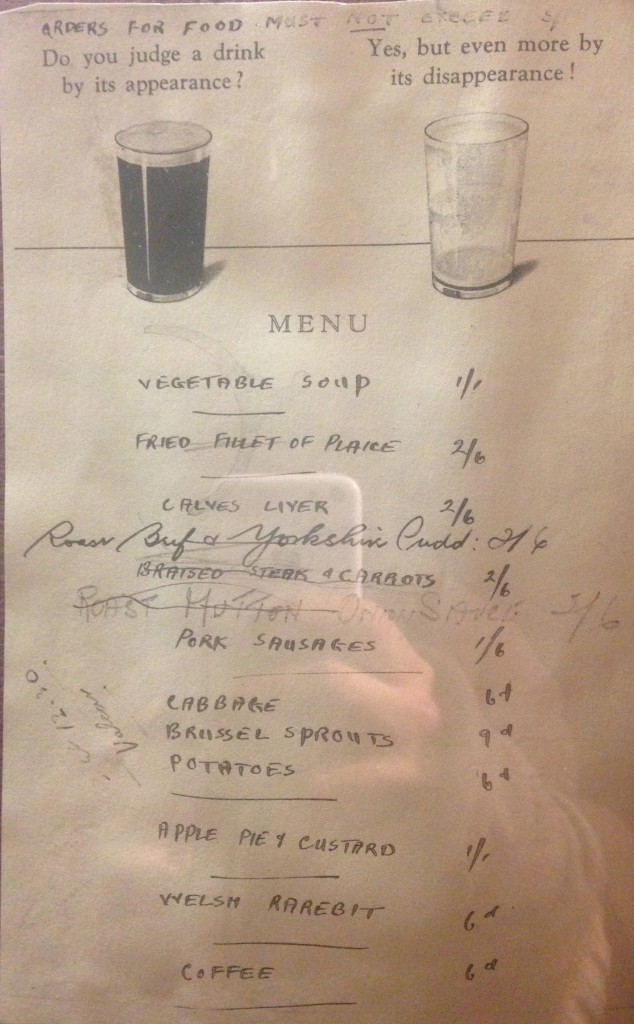 ORDERS FOR FOOD MUST NOT EXCEED 5/
Do you judge a drink
by its appearance?
Yes, but even more by
its disappearance!
MENU
VEGETABLE SOUP 1/1
FRIED FILLET OF PLAICE 2/6
CALVES LIVER 2/6
Roast Beef & Yorkshire Pudd: 2/6
BRAISED STEAK & CARROTS 2/6
ROAST MUTTON ONION SAUCE 2/6
PORK SAUSAGES 1/6
12.30
CABBAGE 6d
BRUSSEL SPROUTS 9d
POTATOES 6d
APPLE PIE & CUSTARD 1/1
WELSH RAREBIT 6d
COFFEE 6d